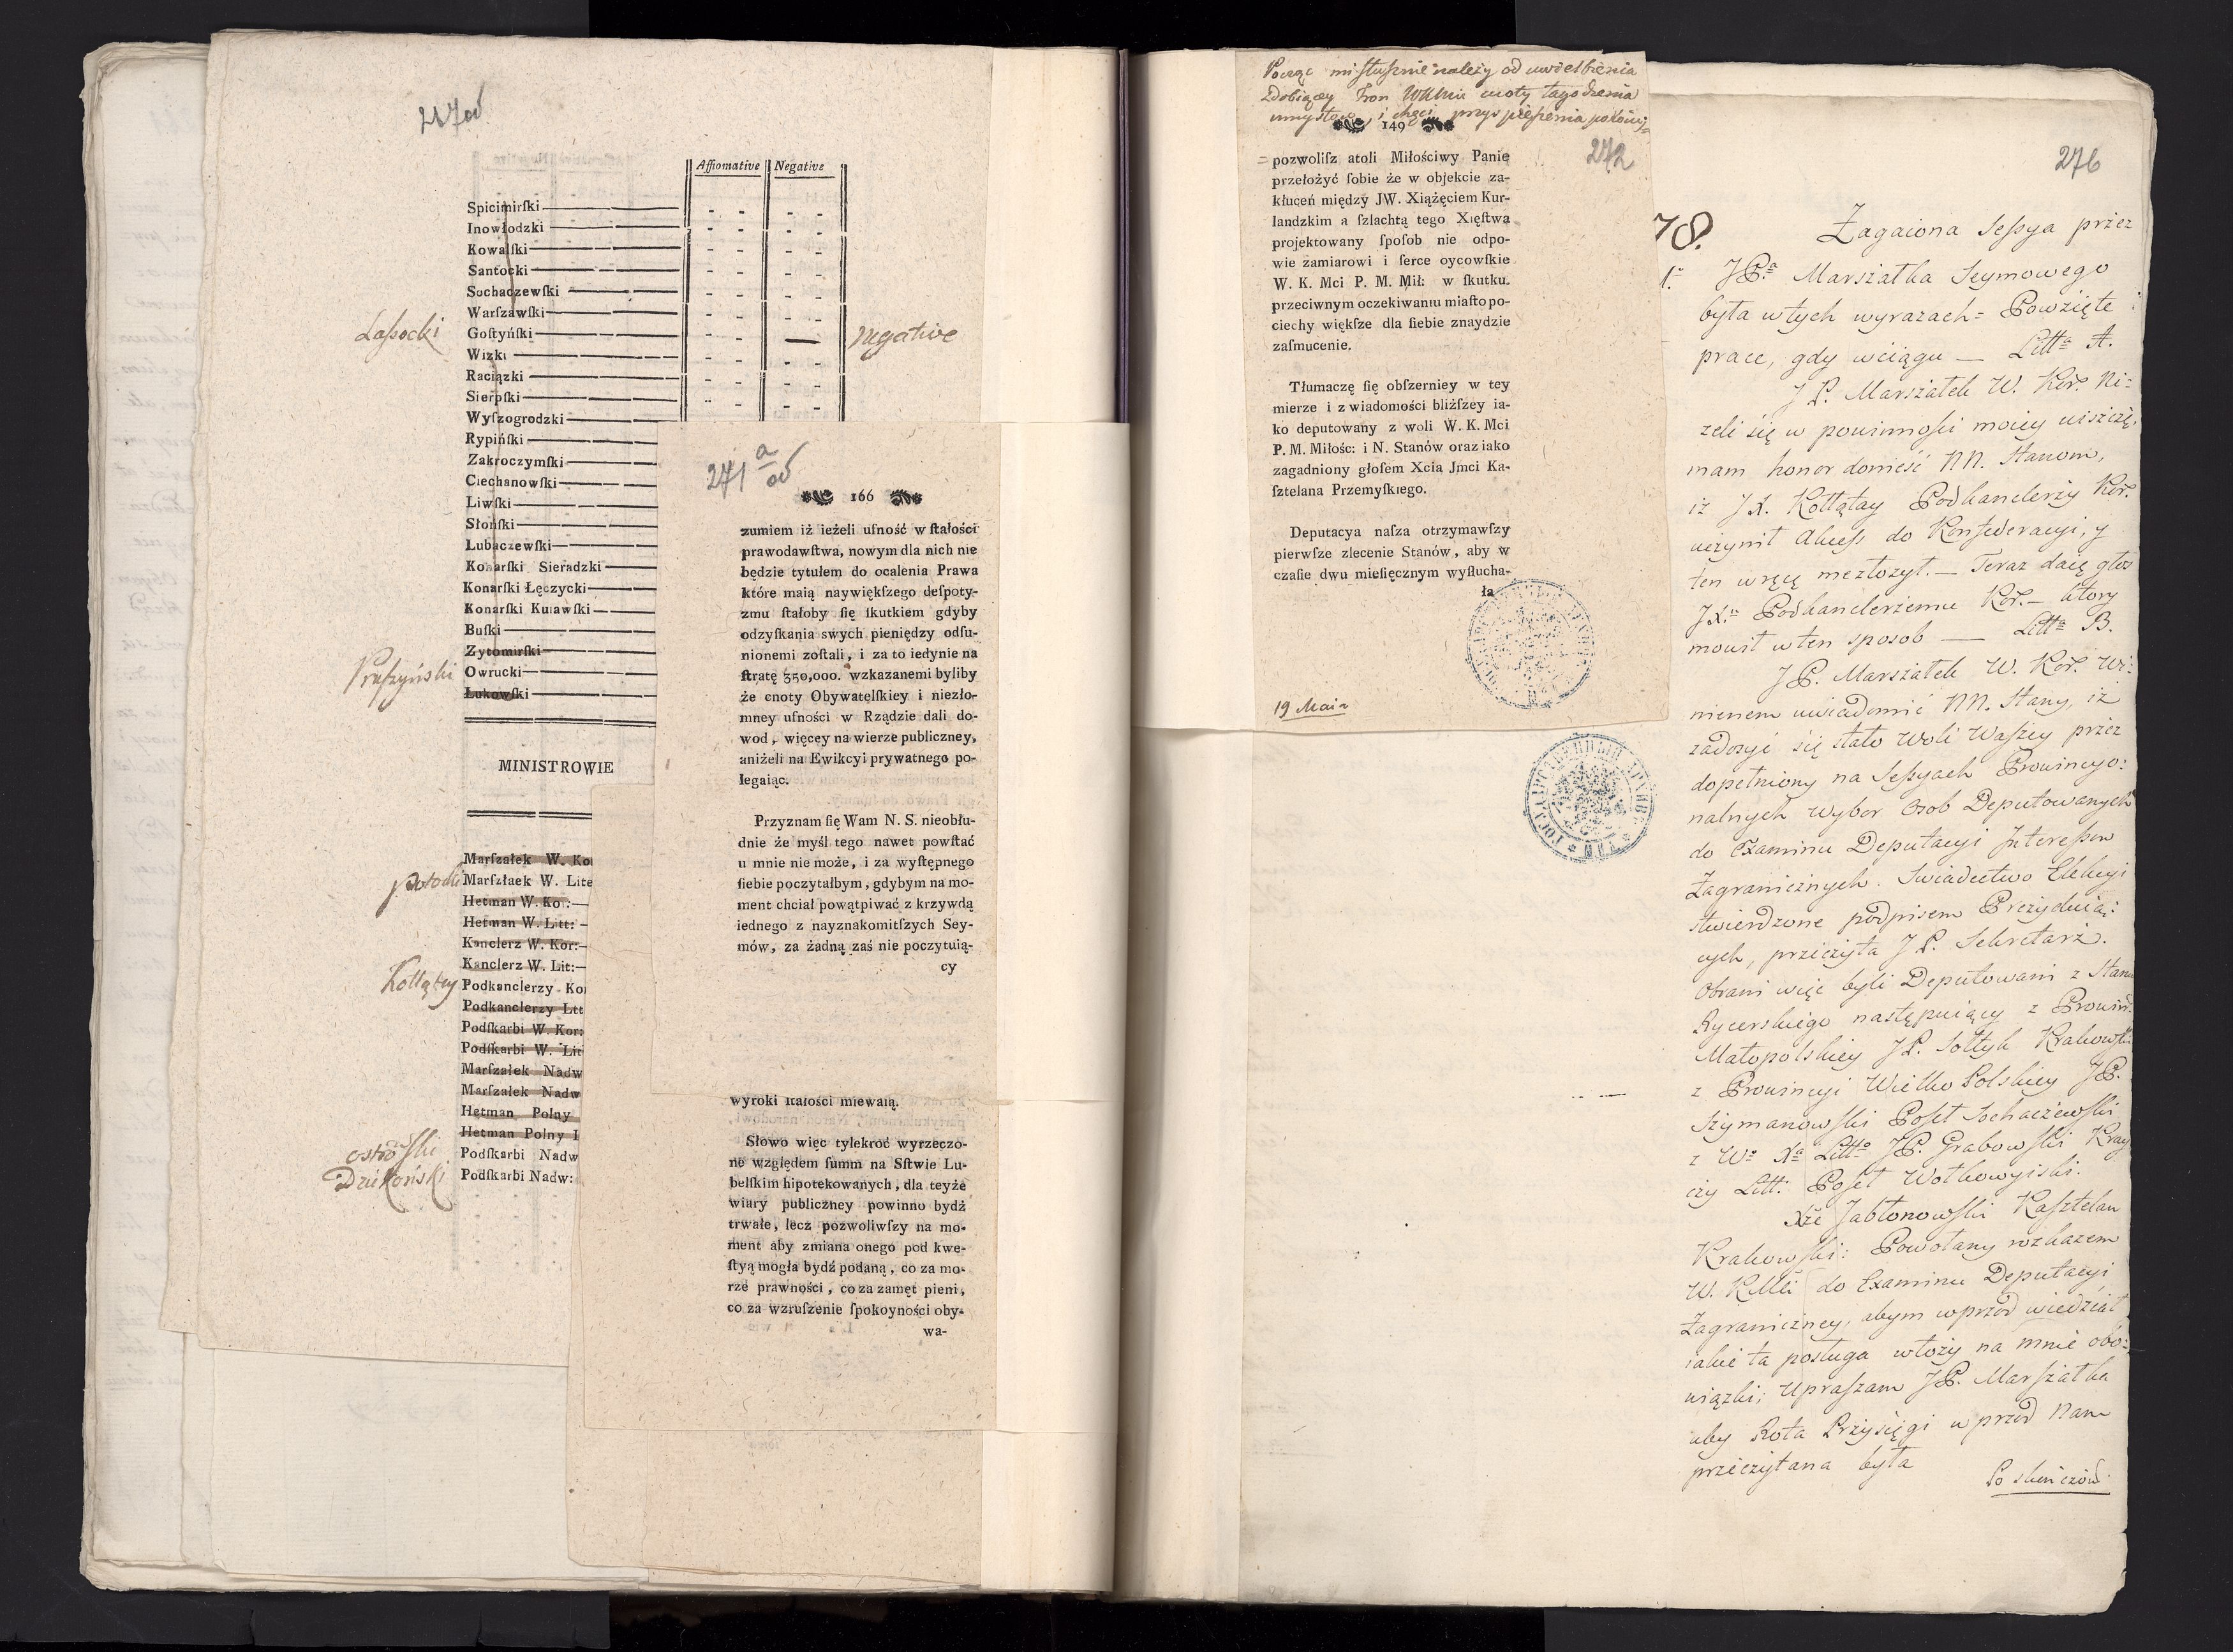 217 od
Affiomative Negative
Spicimirſki
Inowłodzki
Kowalſki
Santocki
Sochaczewſki
Warſzawſki
Laſsocki Goſtyńſki negative
Wizki
Raciązki
Sierpſki
Wyſzogrodzki
Rypińſki
Zakroczymſki
Ciechanowſki
Liwſki
Słońſki
Lubaczewſki
Konarſki Sieradzki
Konarſki Łęczycki
Konarſki Kuiawſki
Buſki
Zytomirſki
Pruſzyński Owrucki
Łukowſki
MINISTROWIE
Marſzałek W. Ko
Potocki Marſzłaek W. Lite
Hetman W. Kor:
Hetman W. Litt:
Kanclerz W. Kor:
Kanclerz W. Lit:
Kołłątay Podkanclerzy Ko
Podkanclerzy Ltt
Podſkarbi W. Kor:
Podſkarbi W. Lit
Marſzałek Nadw
Marſzałek Nadw
Hetman Polny
Hetman Polny I
ostroſski Podſkarbi Nadw
Dziekoński Podſkarbi Nadw:
271 a od
166
zumiem iż ieżeli ufność w ſtałości
prawodawſtwa, nowym dla nich nie
będzie tytułem do ocalenia Prawa
które maią naywiękſzego deſpoty-
zmu ſtałoby ſię ſkutkiem gdyby
odzyſkania swych pieniędzy odſu-
nionemi zoſtali, i za to iedynie na
ſtratę 350,000. wzkazanemi byliby
że cnoty Obywatelſkiey i niezło-
mney ufności w Rządzie dali do-
wod, więcey na wierze publiczney,
aniżeli na Ewikcyi prywatnego po-
legaiąc.
Przyznam ſię Wam N. S. nieobłu-
dnie że myśl tego nawet powſtać
u mnie nie może, i za wyſtępnego
ſiebie poczytałbym, gdybym na mo-
ment chciał powątpiwać z krzywdą
iednego z nayznakomitſzych Sey-
mów, za żadną zaś nie poczytuią-
cy
wyroki ſtałości miewaią.
Słowo więc tylekroć wyrzeczo-
ne względem ſumm na Sſtwie Lu-
belſkim hipotekowanych, dla teyże
wiary publiczney powinno bydź
trwałe, lecz pozwoliwſzy na mo-
ment aby zmiana onego pod kwe-
ſtyą mogła bydź podaną, co za mo-
rze prawności, co za zamęt pieni,
co za wzruſzenie ſpokoyności oby-
wa-
Począć mi słusznie należy od uwielbienia
zdobiącey Tron WKMci cnoty łagodzenia
umysłow, i chęci przyspieszenia pokoiu;
149
272
pozwoliſz atoli Miłościwy Panie
przełożyć ſobie że w objekcie za-
kłuceń między JW. Xiążęciem Kur-
landzkim a ſzlachtą tego Xięſtwa
projektowany ſpoſob nie odpo-
wie zamiarowi i ſerce oycowſkie
W. K. Mci P. M. Mił: w ſkutku
przeciwnym oczekiwaniu miaſto po-
ciechy więkſze dla ſiebie znaydzie
zaſmucenie.
Tłumaczę ſię obſzerniey w tey
mierze i z wiadomości bliżſzey ia-
ko deputowany z woli W. K. Mci
P. M. Miłośc: i N. Stanów oraz iako
zagadniony głoſem Xcia Jmci Ka-
ſztelana Przemyſkiego.
Deputacya naſza otrzymawſzy
pierwſze zlecenie Stanów, aby w
czaſie dwu mieſięcznym wyſłucha-
ła
19 Maia
276
78. Zagaiona Seſsya przez
1.o JP.a Marszałka Seymowego
była w tych wyrazach = Powzięte
prace, gdy wciągu — Litt.a A.
J P. Marszałek W. Kor. Ni-
żeli się w powinności moiey uiszczę,
mam honor donieść NN. Stanom,
iż J X. Kołłątay Podkanclerzy Kor.
uczynił Akceſs do Konfederacyi, y
ten w ręcę me złożył. — Teraz daię głos
J X.u Podkanclerzemu Kor. — ktory
mowił w ten sposob — Litt.a B.
J P. Marszałek W. Kor. Wi-
nienem uwiadomić NN. Stany, iż
zadosyć się stało Woli Waſzey przez
dopełniony na Seſsyach Prowincyo:
nalnych wybor Osob Deputowanych
do Examinu Deputacyi Intereſsow
Zagranicznych. Swiadectwo Elekcyi
stwierdzone podpisem Prezyduią:
cych, przeczyta J P. Sekretarz.
Obrani więc byli Deputowani z Stanu
Rycerskiego następuiący z Prowin.
Małopolskiey J P. Sołtyk Krakowski
z Prowincyi Wielko Polskiey JP.
Szymanowſki Poſeł Sochaczewſki
z Wo Xa Litto JP. Grabowſki Kray
czy Litt: Poſeł Wołkowyiski.
Xże Jabłonowſki Kaſztelan
Krakowſki: Powołany rozkazem
W. KMci do Examinu Deputacyi
Zagraniczney, abym wprzod wiedział
iakie ta posługa włoży na mnie obo:
wiązki; Upraſzam JP. Marſzałka
aby Rota Przysięgi w przod Nam
przeczytana była
Po skończon.